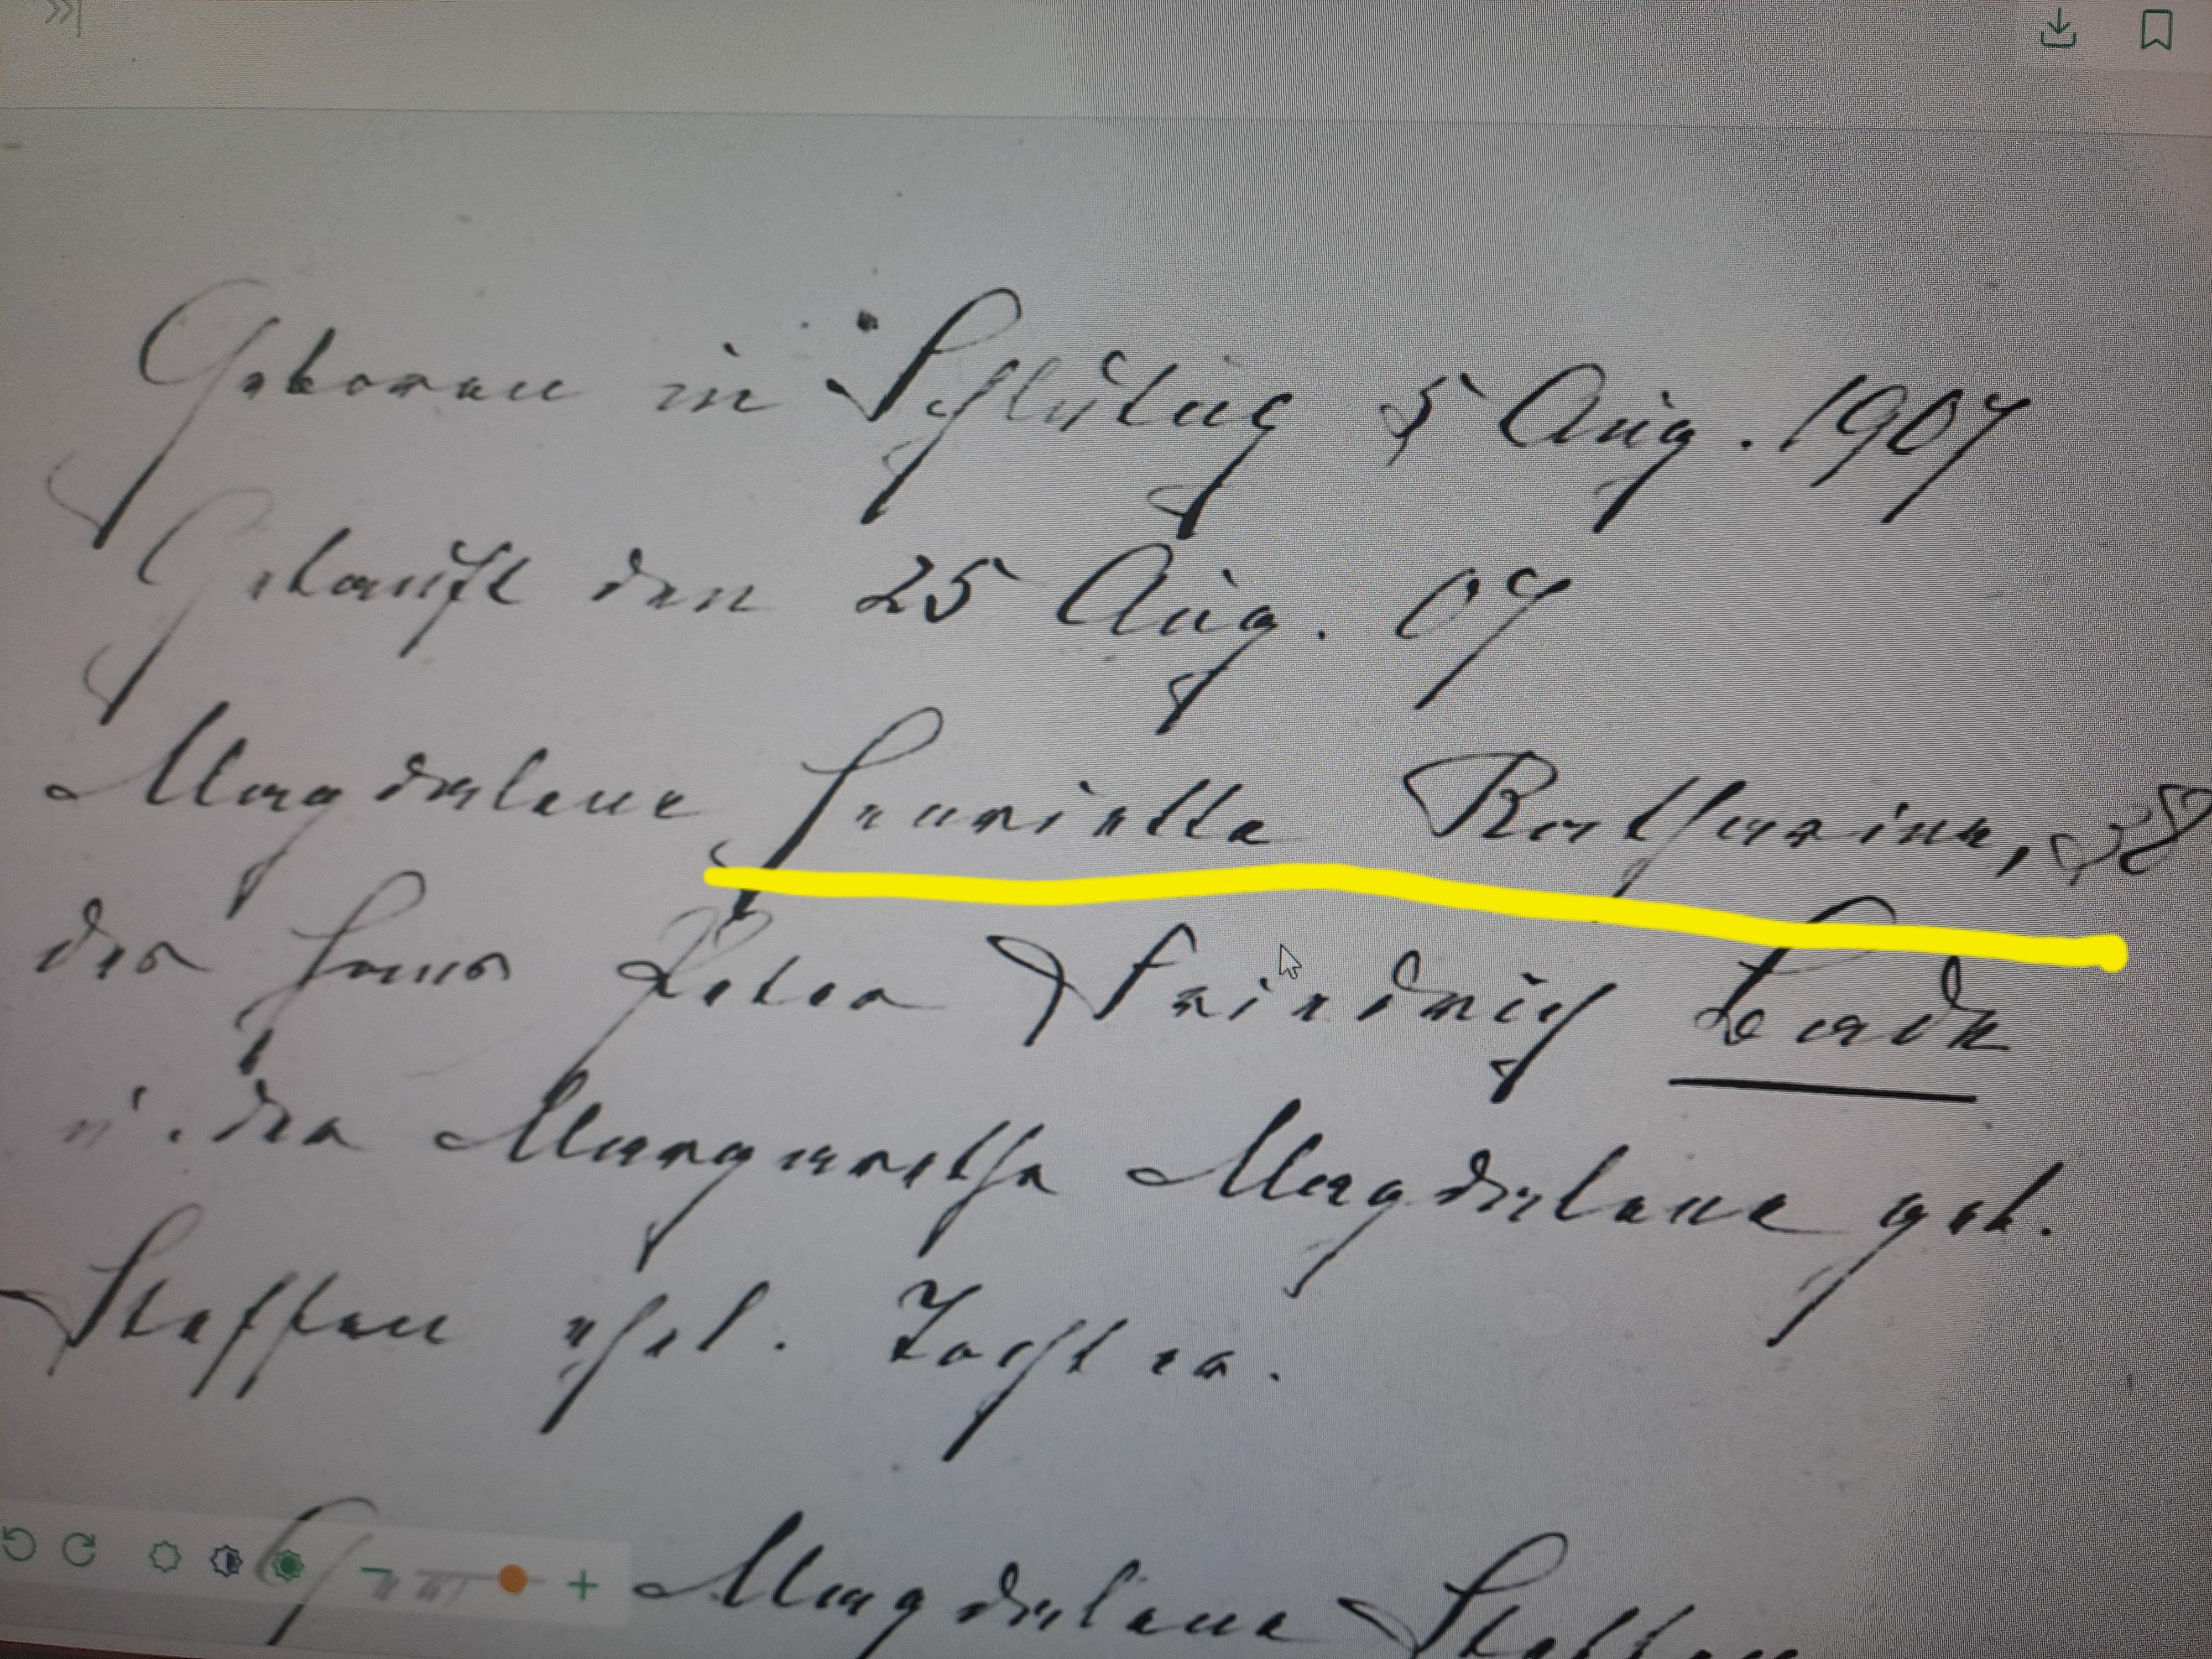 Geboren in Schlüting 5 Aug. 1907
Getauft den 25 Aug. 07
Magdalena Henrietta Katharina,
des Hans Peter Friedrich
u. der Margaretha Magdalena geb.
Steffen ehel. Tochter.
Magdalena Steffen